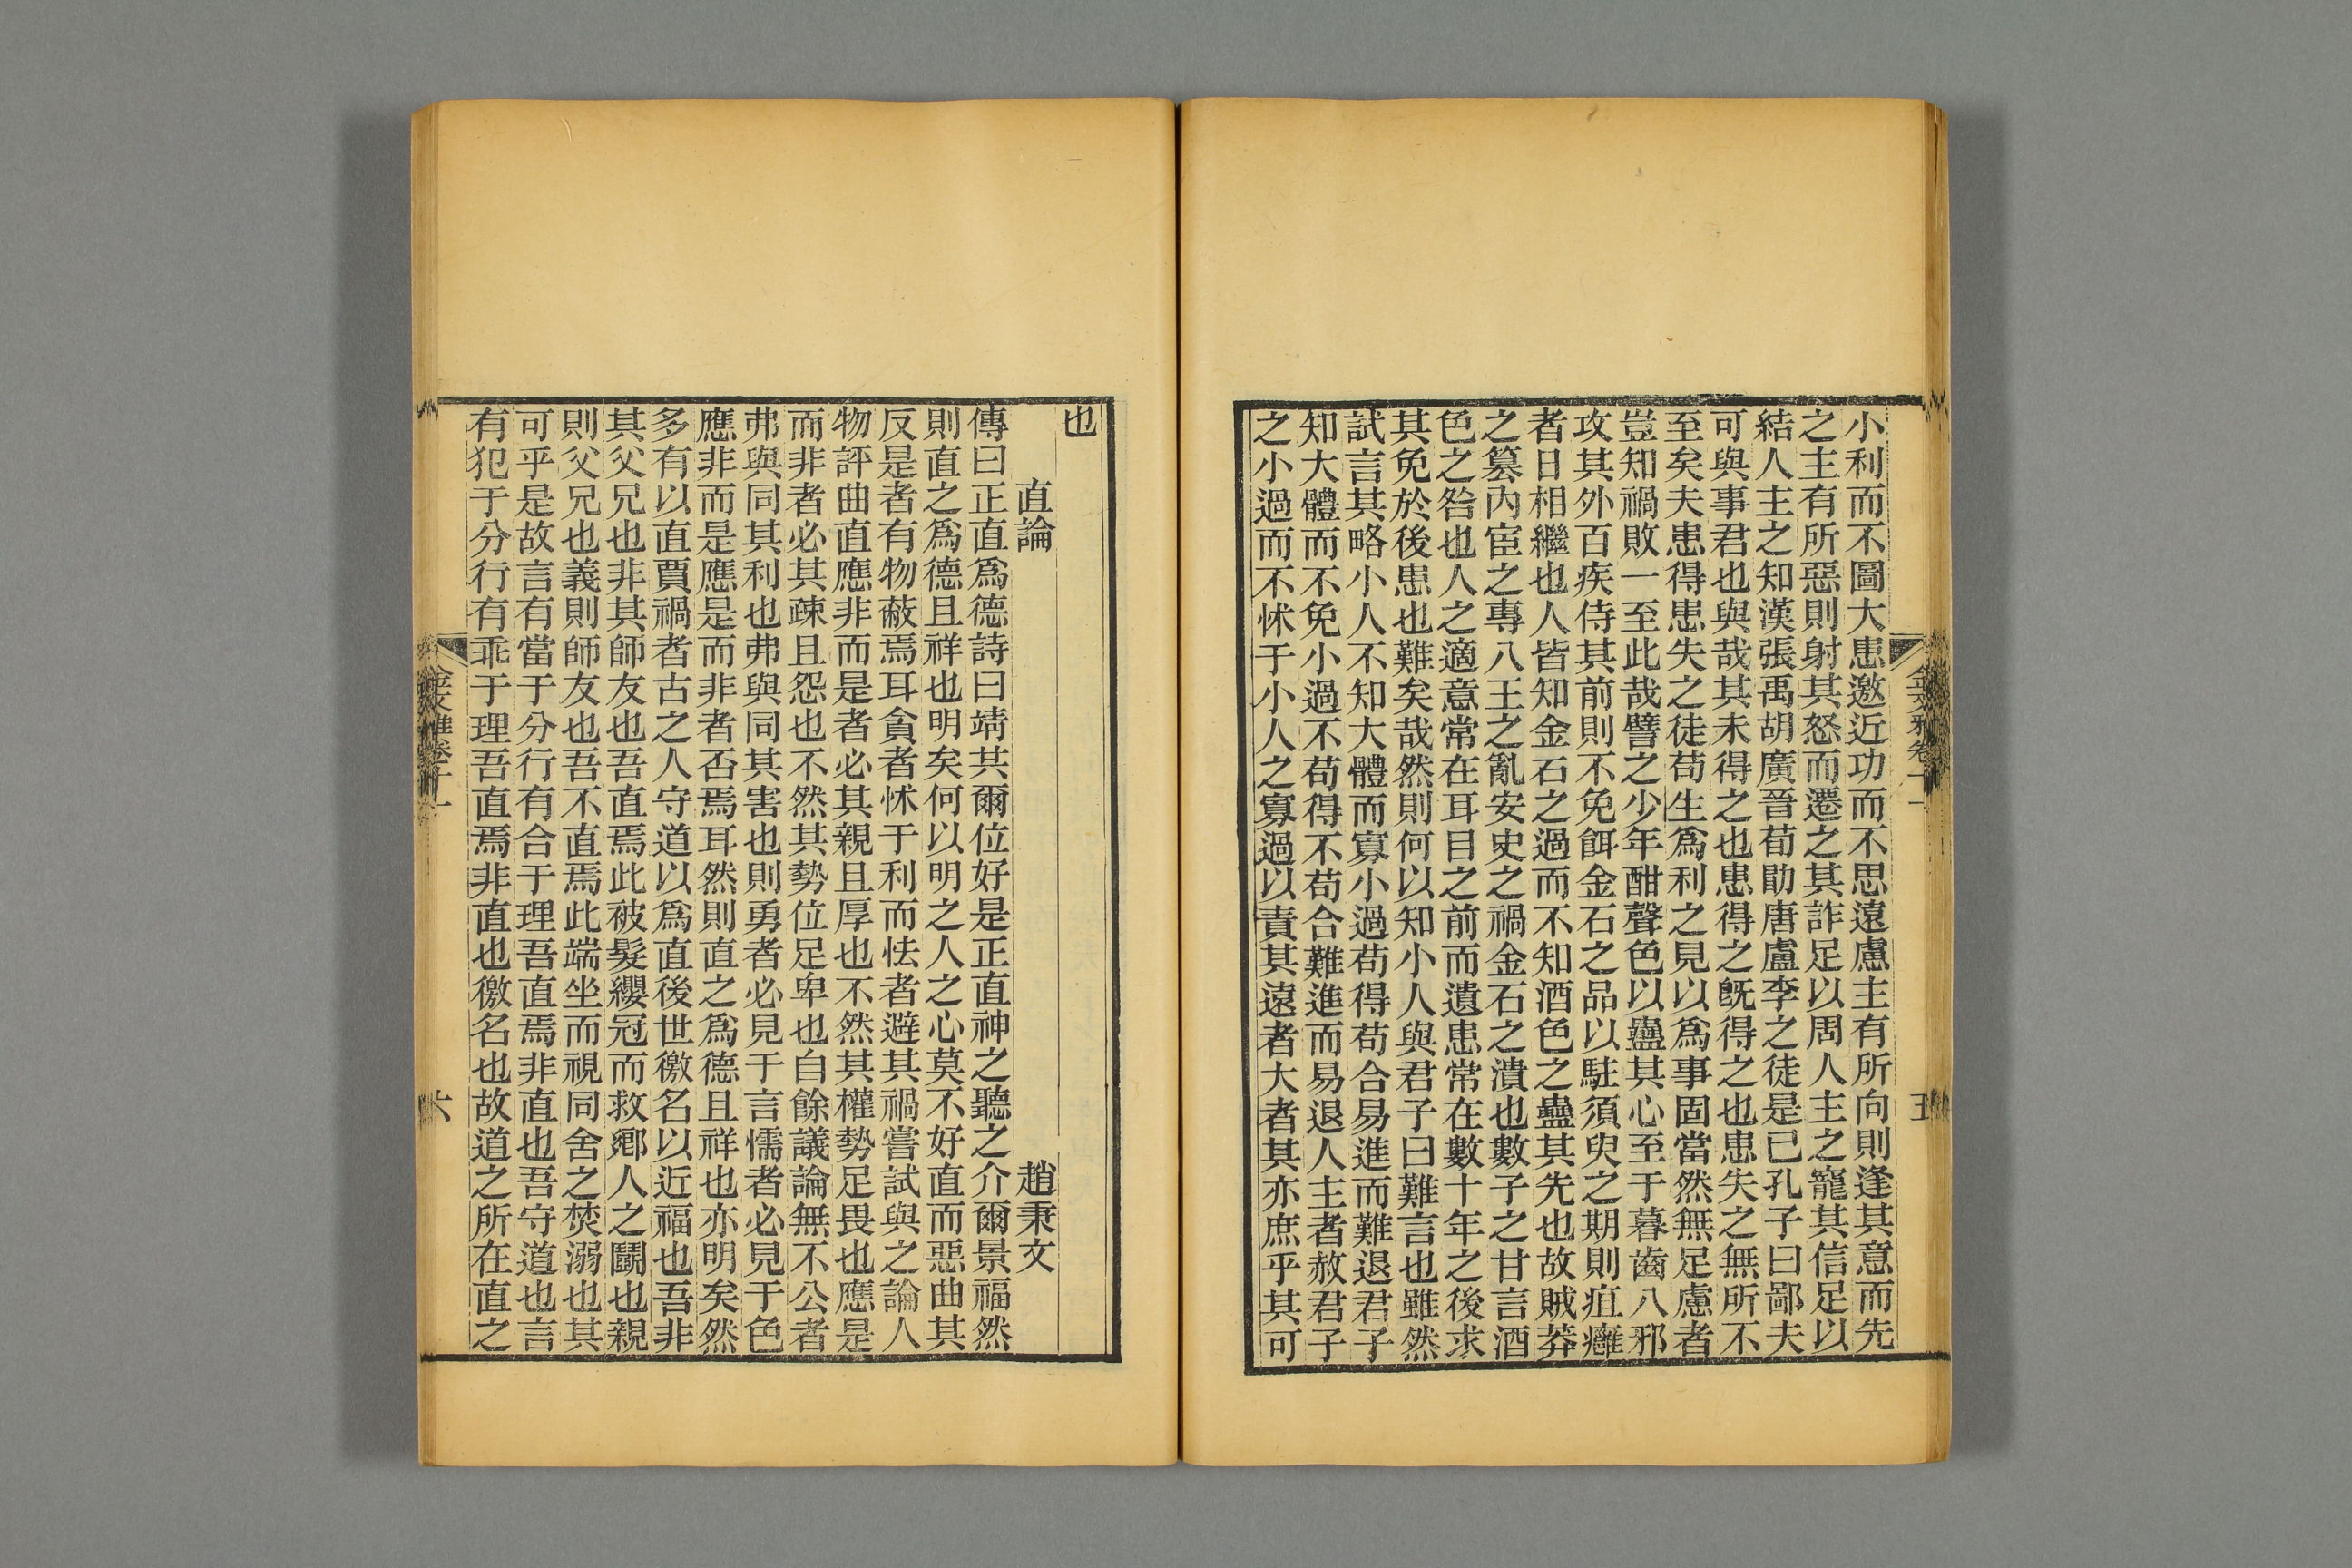 小利而不圖大患邀近功而不思遠慮主有所向則逢其意而先
之主有所惡則射其怒而遷之其詐足以周人主之寵其信足以
結人主之知漢張禹胡廣晉荀勖唐盧李之徒是已孔子曰鄙夫
可與事君也與哉其未得之也患得之旣得之也患失之無所不
至矣夫患得患失之徒苟生爲利之見以爲事固當然無足慮者
豈知禍敗一至此哉譬之少年酣聲色以蠱其心至于暮齒八邪
攻其外百疾侍其前則不免餌金石之品以駐須臾之期則疽癰
者日相繼也人皆知金石之過而不知酒色之蠱其先也故賊莽
之篡內宦之專八王之亂安史之禍金石之潰也數子之甘言酒
色之咎也人之適意常在耳目之前而遺患常在數十年之後求
其免於後患也難矣哉然則何以知小人與君子曰難言也雖然
試言其略小人不知大體而寡小過苟得苟合易進而難退君子
知大體而不免小過不苟得不苟合難進而易退人主者赦君子
之小過而不怵于小人之寡過以責其遠者大者其亦庶乎其可
金文雅卷十一
五
也
直論
趙秉文
傳曰正直爲德詩曰靖共爾位好是正直神之聽之介爾景福然
則直之爲德且祥也明矣何以明之人之心莫不好直而惡曲其
反是者有物蔽焉耳貪者怵于利而怯者避其禍嘗試與之論人
物評曲直應非而是者必其親且厚也不然其權勢足畏也應是
而非者必其疎且怨也不然其勢位足卑也自餘議論無不公者
弗與同其利也弗與同其害也則勇者必見于言懦者必見于色
應非而是應是而非者否焉耳然則直之爲德且祥也亦明矣然
多有以直賈禍者古之人守道以爲直後世徼名以近福也吾非
其父兄也非其師友也吾直焉此被髮纓冠而救鄉人之鬭也親
則父兄也義則師友也吾不直焉此端坐而視同舍之焚溺也其
可乎是故言有當于分行有合于理吾直焉非直也吾守道也言
有犯于分行有乖于理吾直焉非直也徼名也故道之所在直之
金文雅卷十一
六